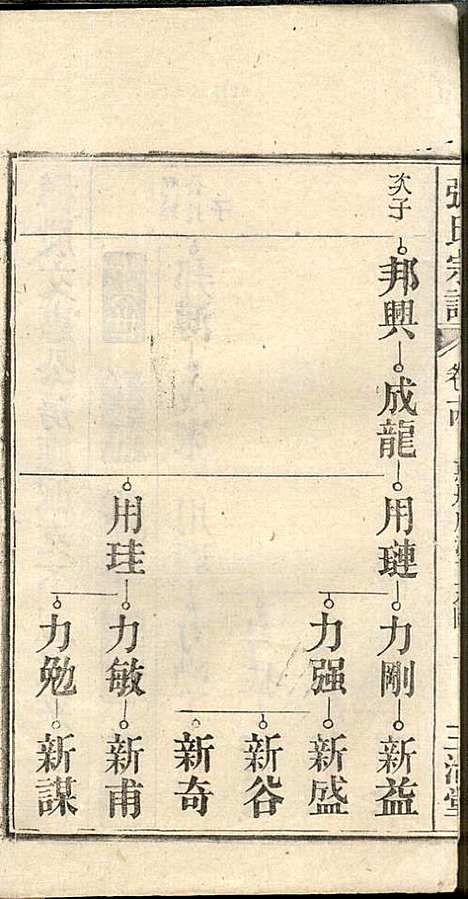 張氏宗譜
卷十四
次子
邦興
成龍
用璉
力剛
新益
力强
新盛
新谷
新奇
用珪
力敏
新甫
力勉
新謀